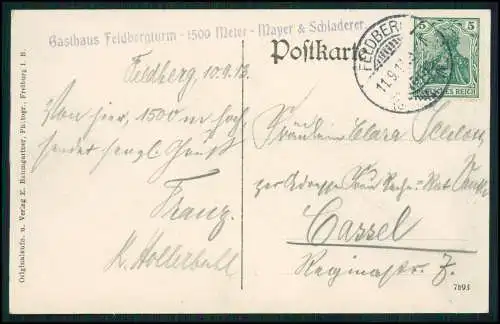 Gasthaus Feldbergturm - 1500 Meter - Mayer & Schladerer.
Postkarte
FELDBERG
11.9.13
5
DEUTSCHES REICH
Feldberg 10.9.13.
Von hier, 1500 m hoch
sendet herzl. Gruß
Franz.
K. Hollerbuhl
Fräulein Clara
per Adresse Frau Rech.-Rat
Cassel
Reginastr. 7.
Originalaufn. u. Verlag E. Baumgartner, Photogr., Freiburg i. B.
7893